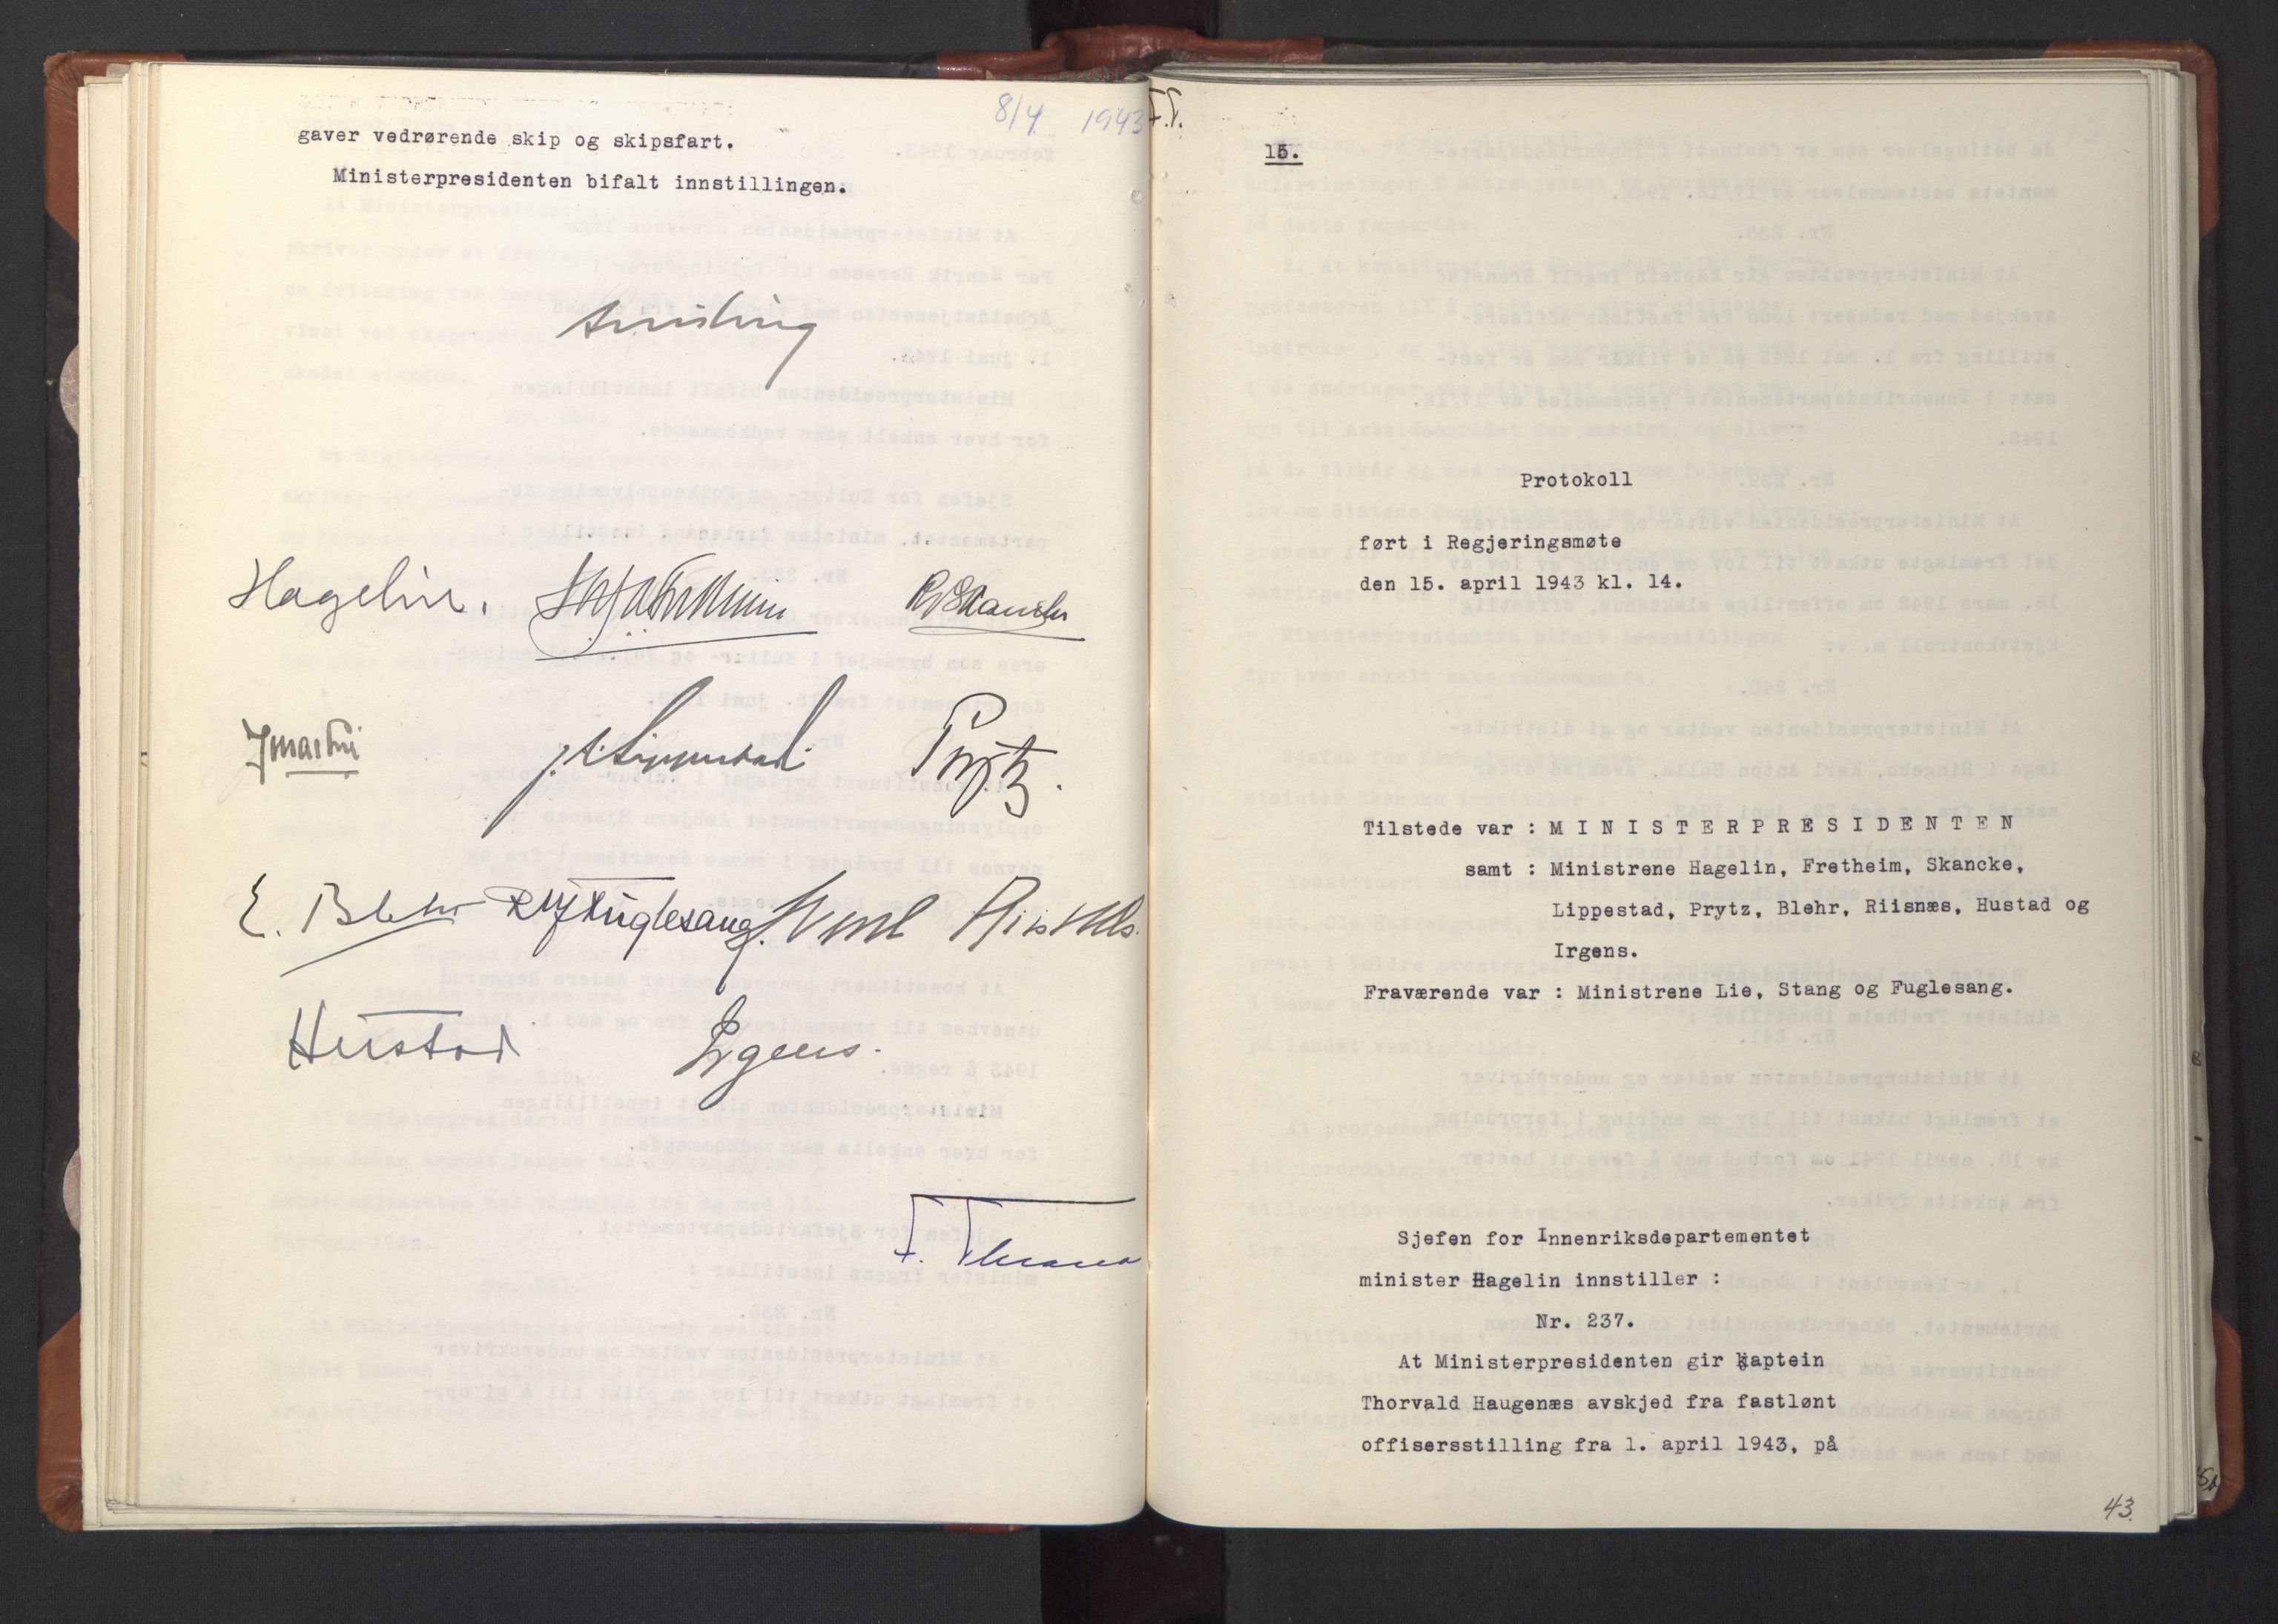 8/4 1943
F.T.
gaver vedrørende skip og skipsfart.
Ministerpresidenten bifalt innstillingen.
Quisling
Hagelin.
RSkancke
Lippestad
Prytz.
E. Blehr
Rolf Fuglesang.
Hustad
Irgens.
15.
Protokoll
ført i Regjeringsmøte
den 15. april 1943 kl. 14.
Tilstede var : MINISTERPRESIDENTEN
samt : Ministrene Hagelin, Fretheim, Skancke,
Lippestad, Prytz, Blehr, Riisnæs, Hustad og
Irgens.
Fraværende var : Ministrene Lie, Stang og Fuglesang.
Sjefen for Innenriksdepartementet
minister Hagelin innstiller :
Nr. 237.
At Ministerpresidenten gir kaptein
Thorvald Haugenæs avskjed fra fastlønt
offisersstilling fra 1. april 1943, på
43.